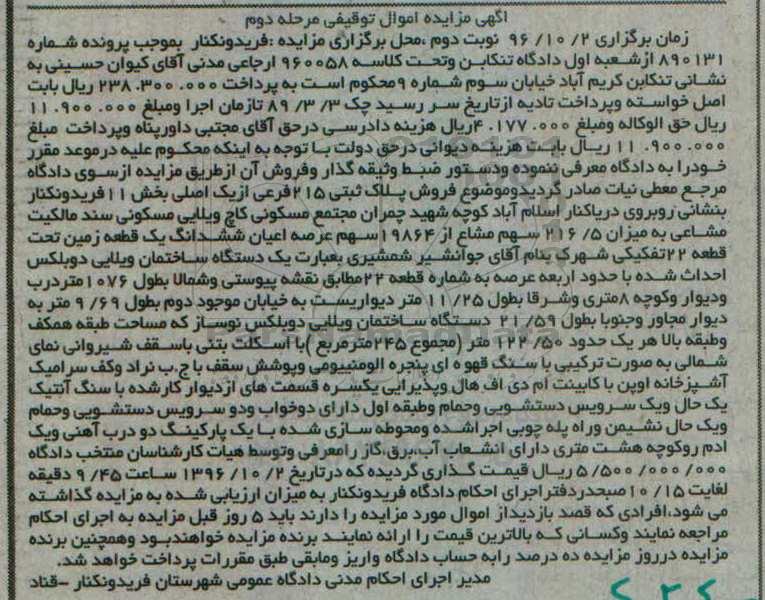 اگهی مزایده اموال توقیفی مرحله دوم
زمان برگزاری ۲/ ۱۰/ ۹۶ نوبت دوم ،محل برگزاری مزایده :فریدونکنار بموجب پرونده شماره
۸۹۰۱۳۱ ازشعبه اول دادگاه تنکابن وتحت کلاسه ۹۶۰۰۵۸ ارجاعی مدنی آقای کیوان حسینی به
نشانی تنکابن کریم آباد خیابان سوم شماره ۹محکوم است به پرداخت ۲۳۸.۳۰۰.۰۰۰ ریال بابت
اصل خواسته وپرداخت تادیه ازتاریخ سر رسید چک ۳/ ۳/ ۸۹ تازمان اجرا ومبلغ ۱۱.۹۰۰.۰۰۰
ریال حق الوکاله ومبلغ ۴.۱۷۷.۰۰۰ریال هزینه دادرسی درحق آقای مجتبی داورپناه وپرداخت مبلغ
۱۱.۹۰۰.۰۰۰ ریال بابت هزینه دیوانی درحق دولت با توجه به اینکه محکوم علیه درموعد مقرر
خودرا به دادگاه معرفی ننموده ودستور ضبط وثیقه گذار وفروش آن ازطریق مزایده ازسوی دادگاه
مرجع معطی نیات صادر گردیدوموضوع فروش پلاک ثبتی ۲۱۵فرعی ازیک اصلی بخش ۱۱فریدونکنار
بنشانی روبروی دریاکنار اسلام آباد کوچه شهید چمران مجتمع مسکونی کاج ویلایی مسکونی سند مالکیت
مشاعی به میزان ۵/ ۲۱۶ سهم مشاع از ۱۹۸۶۴سهم عرصه اعیان ششدانگ یک قطعه زمین تحت
قطعه ۲۲تفکیکی شهرک بنام آقای جوانشیر شمشیری بعبارت یک دستگاه ساختمان ویلایی دوبلکس
احداث شده با حدود اربعه عرصه به شماره قطعه ۲۲مطابق نقشه پیوستی وشمالا بطول ۱۰۷۶متردرب
ودیوار وکوچه ۸متری وشرقا بطول ۱۱/۲۵ متر دیواریست به خیابان موجود دوم بطول ۹/۶۹ متر به
دیوار مجاور وجنوبا بطول ۲۱/۵۹ دستگاه ساختمان ویلایی دوبلکس نوساز که مساحت طبقه همکف
وطبقه بالا هر یک حدود ۱۲۲/۵۰ متر (مجموع ۲۴۵مترمربع )با اسکلت بتنی باسقف شیروانی نمای
شمالی به صورت ترکیبی با سنگ قهوه ای پنجره الومنییومی وپوشش سقف با ج.ب نراد وکف سرامیک
آشپزخانه اوپن با کابینت ام دی اف هال وپذیرایی یکسره قسمت های ازدیوار کارشده با سنگ آنتیک
یک حال ویک سرویس دستشویی وحمام وطبقه اول دارای دوخواب ودو سرویس دستشویی وحمام
ویک حال نشیمن وراه پله چوبی اجراشده ومحوطه سازی شده با یک پارکینگ دو درب آهنی ویک
ادم روکوچه هشت متری دارای انشعاب آب،برق،گاز رامعرفی وتوسط هیات کارشناسان منتخب دادگاه
۵/۵۰۰/۰۰۰/۰۰۰ ریال قیمت گذاری گردیده که درتاریخ ۲/ ۱۰/ ۱۳۹۶ ساعت ۹/۴۵ دقیقه
لغایت ۱۰/۱۵صبحدردفتراجرای احکام دادگاه فریدونکنار به میزان ارزیابی شده به مزایده گذاشته
می شود،افرادی که قصد بازدیداز اموال مورد مزایده را دارند باید ۵ روز قبل مزایده به اجرای احکام
مراجعه نمایند وکسانی که بالاترین قیمت را ارائه نمایند برنده مزایده خواهندبود وهمچنین برنده
مزایده درروز مزایده ده درصد رابه حساب دادگاه واریز ومابقی طبق مقررات پرداخت خواهد شد.
مدیر اجرای احکام مدنی دادگاه عمومی شهرستان فریدونکنار -قناد